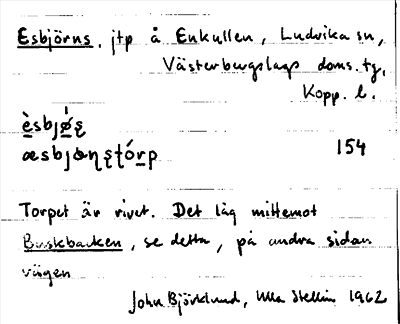 Esbjörns, jtp å Enkullen, Ludvika sn,
Västerbergslags doms. ty,
Kopp. l.
èsbjø̀ʂ
æsbjɵɳʂʈórp 154
Torpet är rivet. Det låg mittemot
Buskbacken, se detta, på andra sidan
vägen
John Björklund, Ulla Stellin 1962